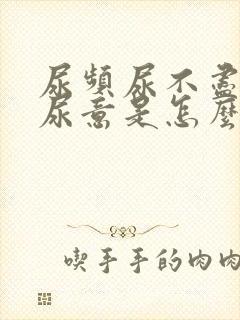 尿頻尿不盡
尿意是怎麼
喫手手的肉肉